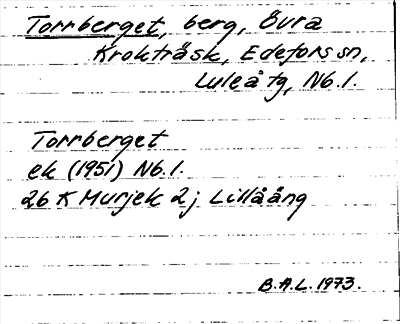 Torrberget, berg, Övra
Krokträsk, Edefors sn,
Luleå tg, Nb. l.
Torrberget
ek (1951) Nb. l.
26 K Murjek 2j Lillåäng
B.A.L. 1973.